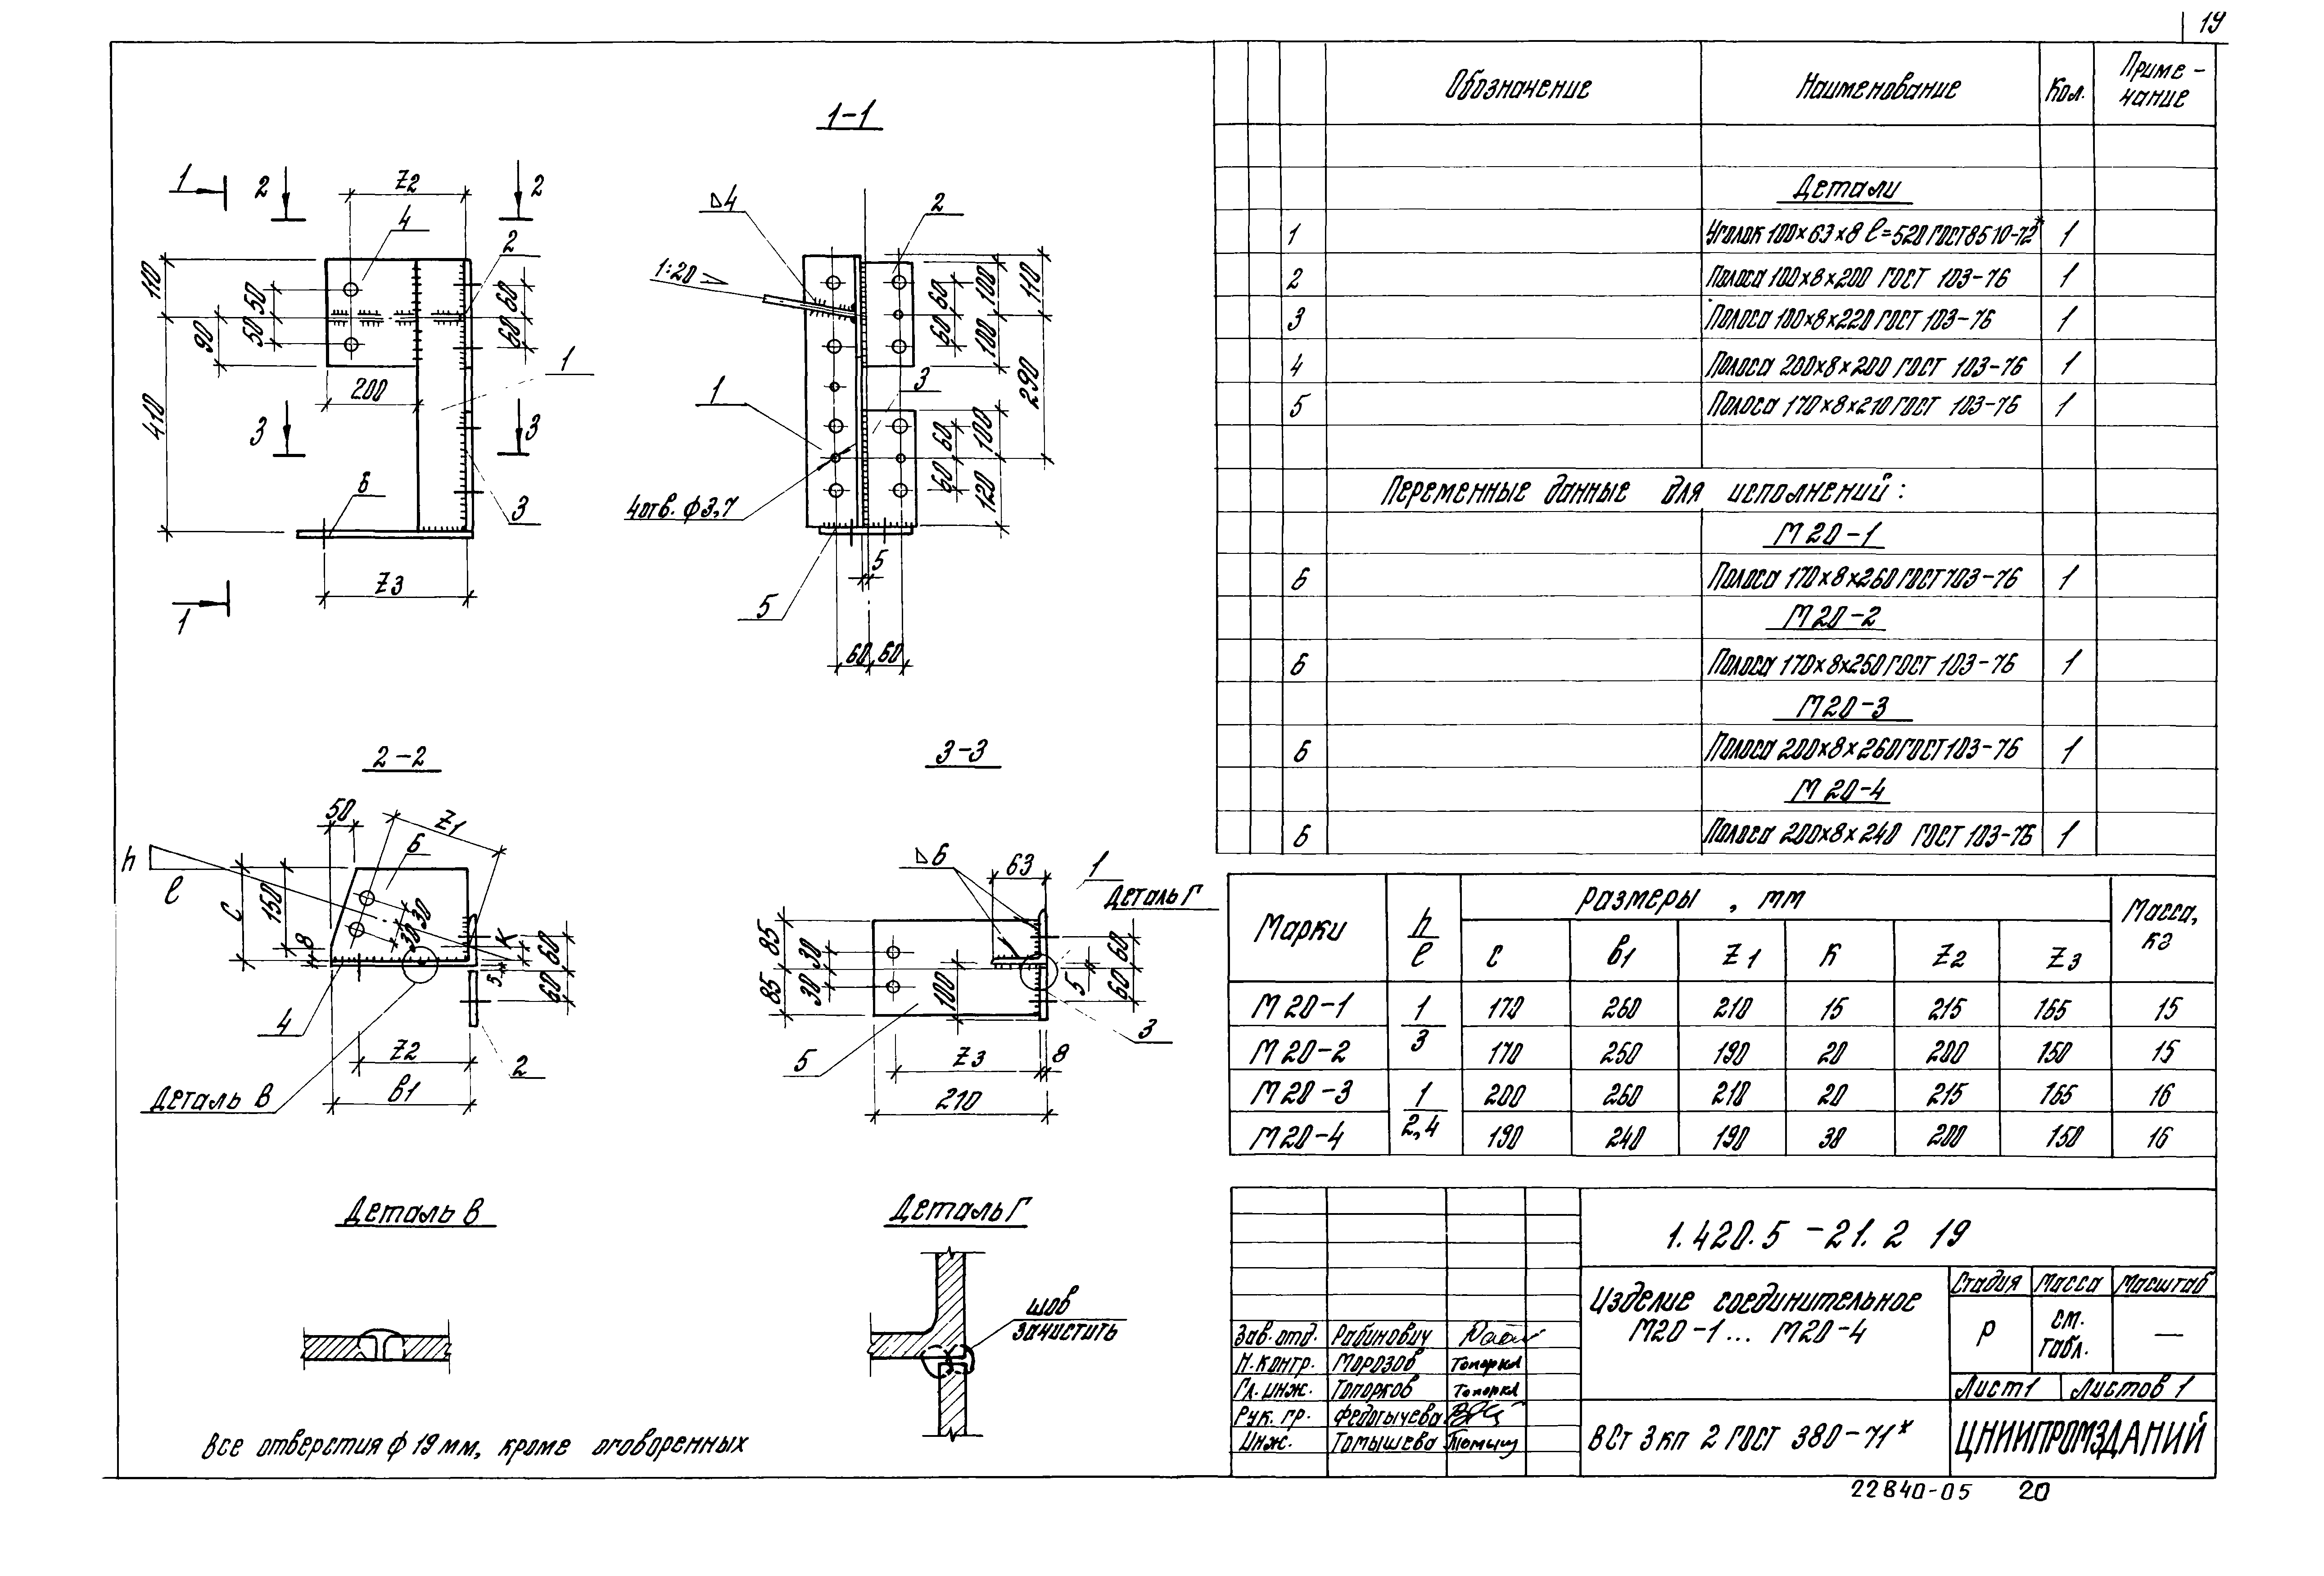 19
Обозначение
Наименование
Кол.
Приме-
чание
Детали
1 Уголок 100×63×8 ℓ=520 ГОСТ 8510-72* 1
2 Полоса 100×8×200 ГОСТ 103-76 1
3 Полоса 100×8×220 ГОСТ 103-76 1
4 Полоса 200×8×200 ГОСТ 103-76 1
5 Полоса 170×8×210 ГОСТ 103-76 1
Переменные данные для исполнений:
М20-1
6 Полоса 170×8×260 ГОСТ 103-76 1
М20-2
6 Полоса 170×8×250 ГОСТ 103-76 1
М20-3
6 Полоса 200×8×260 ГОСТ 103-76 1
М20-4
6 Полоса 200×8×240 ГОСТ 103-76 1
1
2
Z2
2
4
2
110
410
50
50
90
60
60
200
1
3
3
6
3
Z3
1
1-1
4
2
1:20
60
60
100
100
110
290
1
3
60
60
100
120
4 отв. ф3,7
5
5
60
60
2-2
50
Z1
h
ℓ
6
C
150
8
30
30
К
60
60
5
4
Z2
2
в1
Деталь В
3-3
6
63
1
Деталь Г
85
85
30
30
100
5
60
60
3
5
Z3
8
210
Деталь В
Деталь Г
шов
зачистить
Все отверстия ф 19 мм, кроме оговоренных
Марки
h/ℓ
Размеры, мм
Масса,
кг
C в1 Z1 К Z2 Z3
М20-1 1/3 170 260 210 15 215 165 15
М20-2 170 250 190 20 200 150 15
М20-3 1/2,4 200 260 210 20 215 165 16
М20-4 190 240 190 30 200 150 16
1.420.5-21.2 19
Изделие соединительное
М20-1... М20-4
Стадия Масса Масштаб
Р
см.
табл.
—
Лист 1 Листов 1
Зав. отд. Рабинович
Н. контр. Морозов Топорков
Гл. инж. Топорков Топорков
Рук. гр. Федотычева
Инж. Томышева Томыш
ВСт 3 кп 2 ГОСТ 380-71*
ЦНИИПРОМЗДАНИЙ
22840-05 20